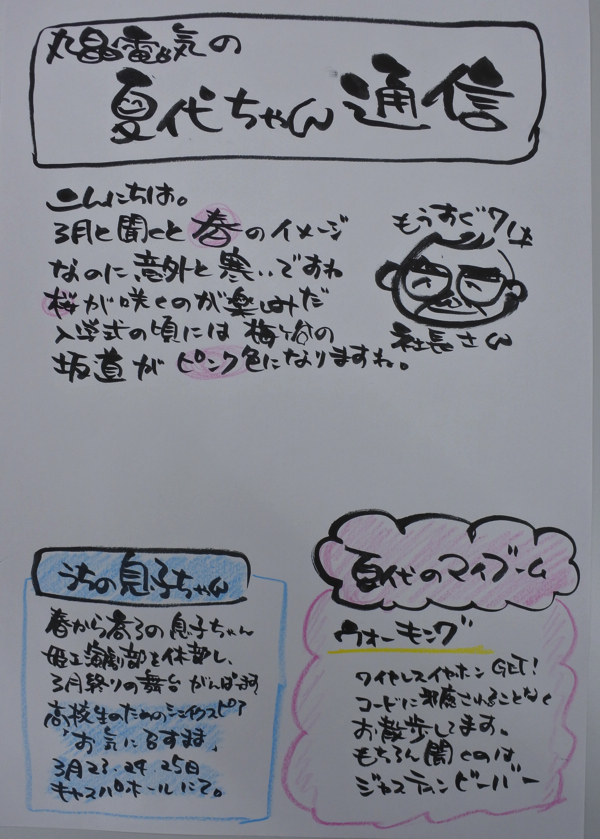 丸晶電気の
夏代ちゃん通信
こんにちは。
3月と聞くと春のイメージ
なのに意外と寒いですね
桜が咲くのが楽しみだ
入学式の頃には梅ヶ谷の
坂道がピンク色になりますね。
もうすぐ71才
社長さん
うちの息子ちゃん
春から高3の息子ちゃん
姫工演劇部を休部し、
3月終りの舞台がんばってます
高校生のためのシェイクスピア
「お気に召すまま」
3月23・24・25日
キャスパホールにて。
夏代のマイブーム
ウォーキング
ワイヤレスイヤホンGET!
コードに邪魔されることなく
お散歩してます。
もちろん聞くのは
ジャスティンビーバー